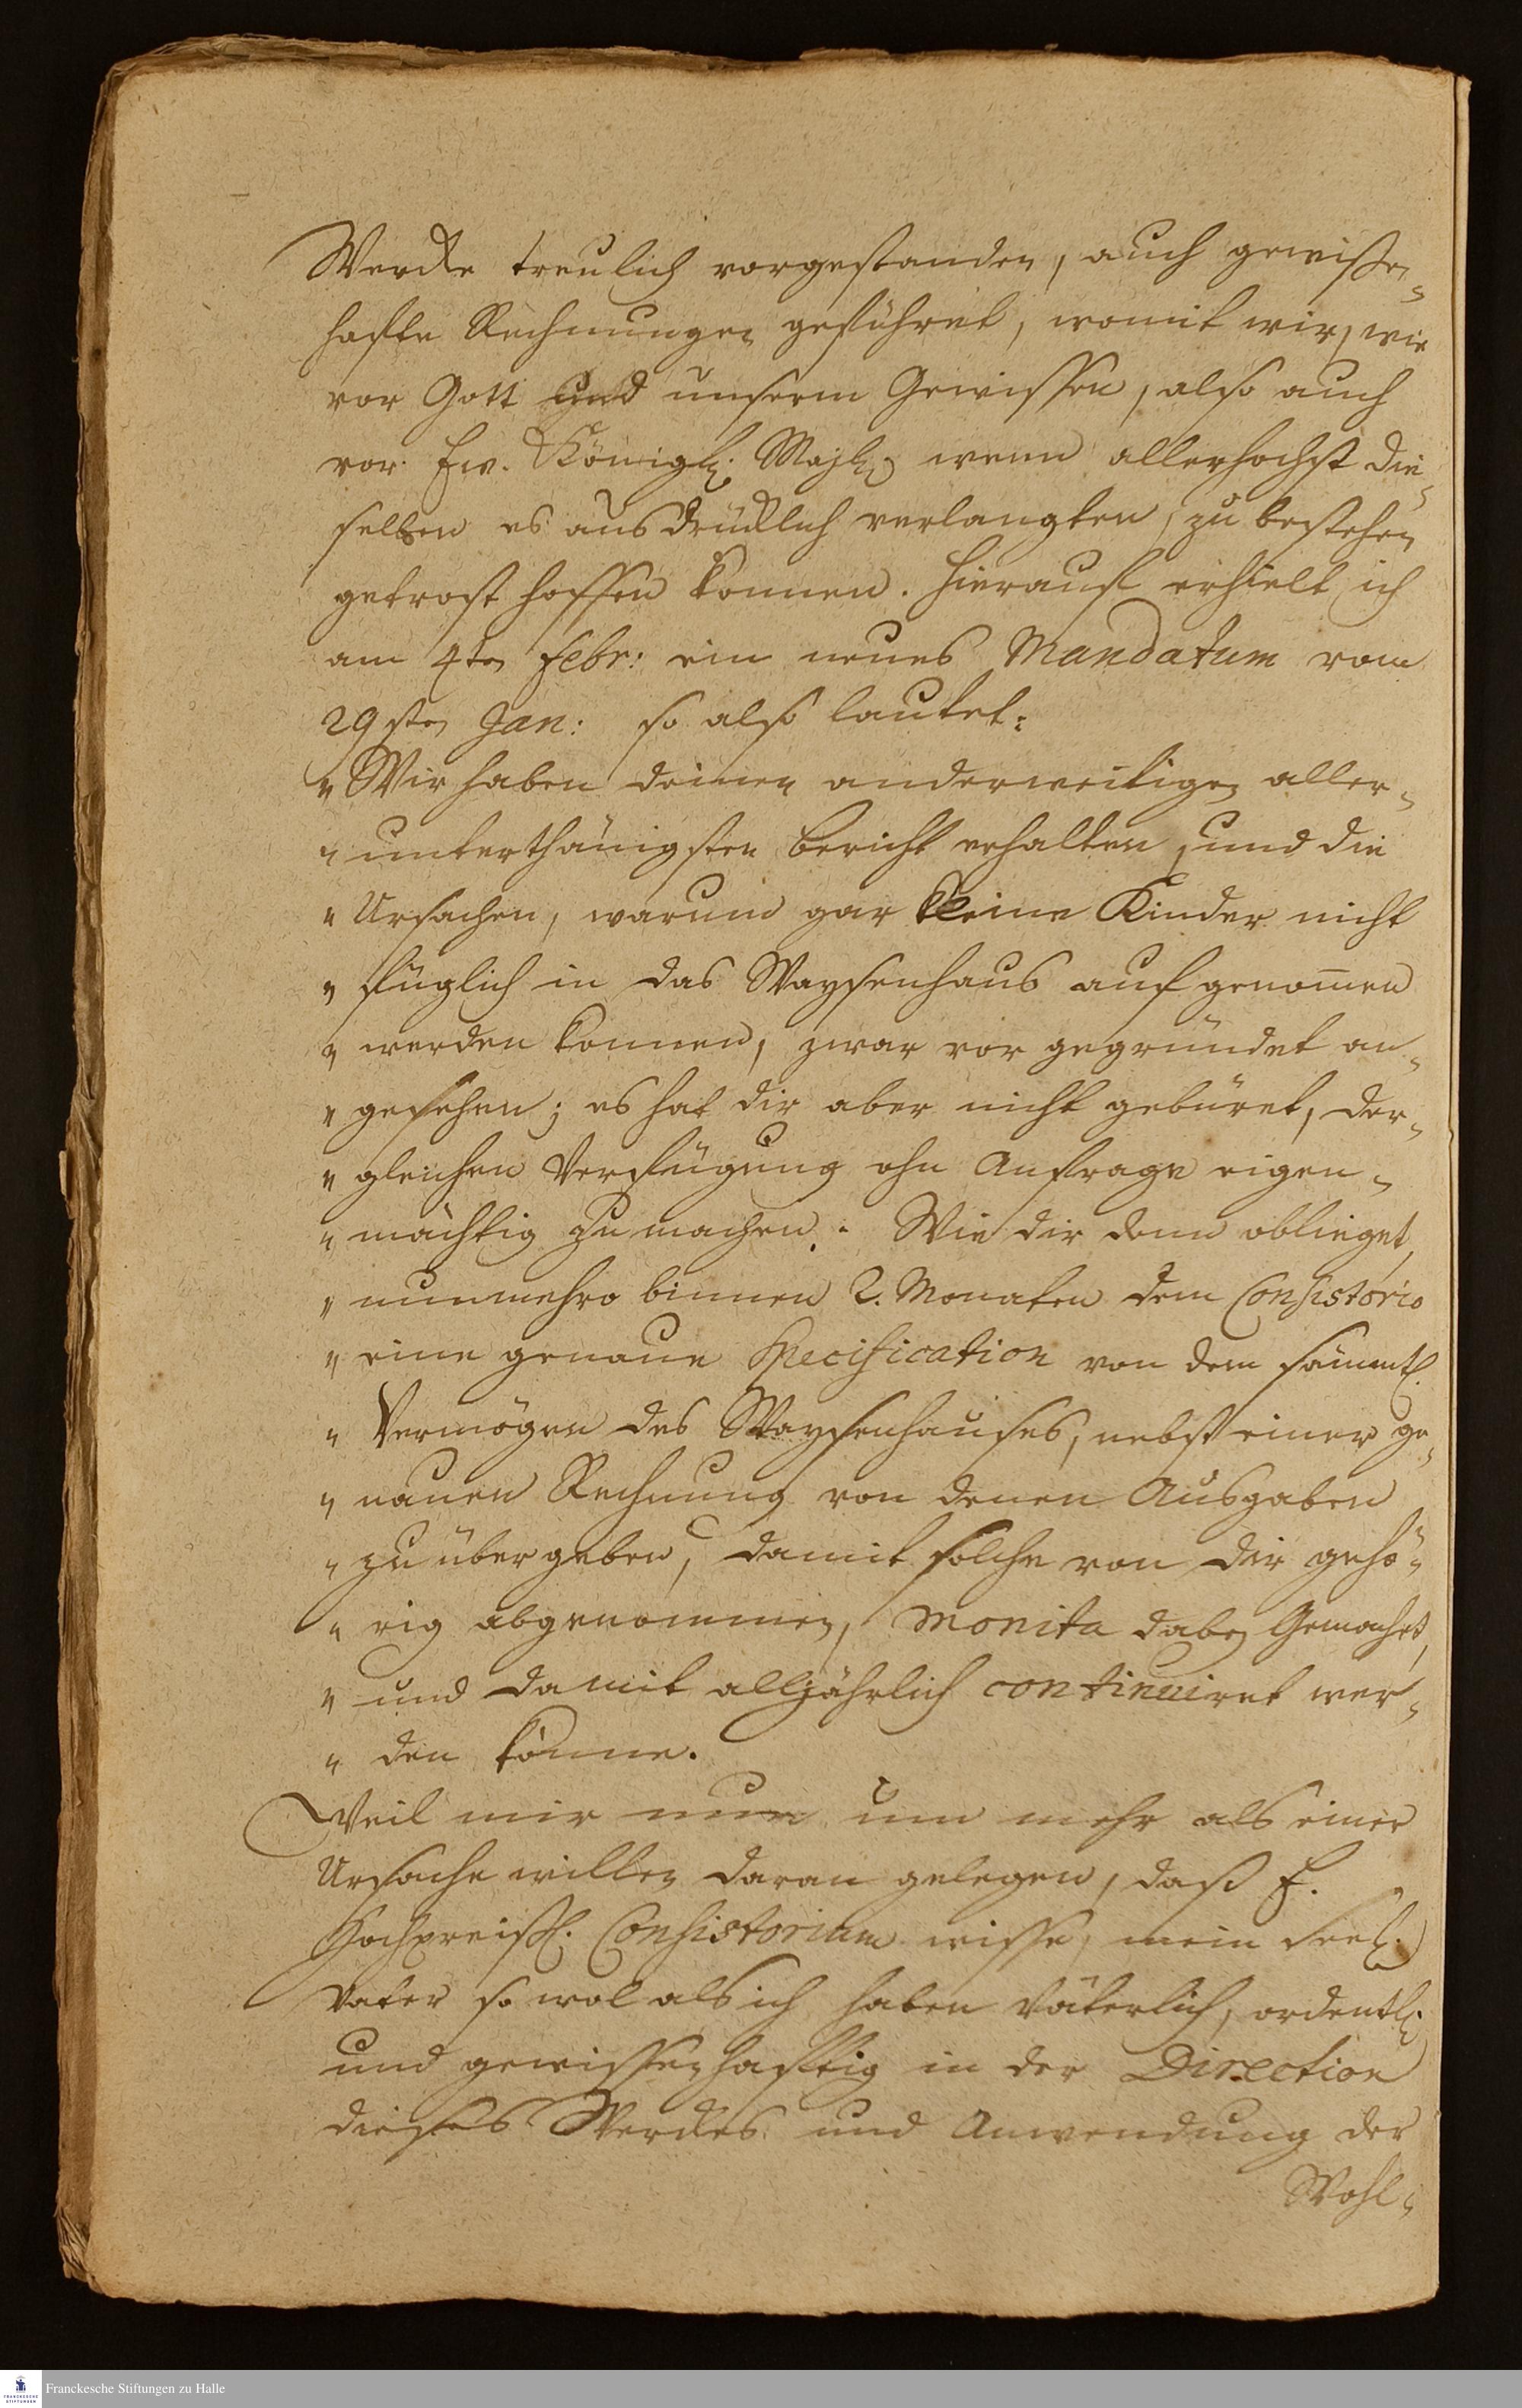 Wercke treulich vorgestanden, auch gewißen-
hafte Rechnungen geführet, womit wir, wie
vor Gott und unserm Gewissen, also auch
vor Ew. Königl. Majt. wenn allerhochst die-
selben es ausdrücklich verlangten, zu bestehen
getrost hoffen konnen. Hierauf erhielt ich
am 4ten Febr: ein neues Mandatum vom
29sten Jan: so also lautet:
" Wir haben deinen anderweitigen aller-
" unterthänigsten bericht erhalten, und die
" Ursachen, warum gar kleine Kinder nicht
" füglich in das Waysenhaus aufgenom̄en
" werden konnen, zwar vor gegründet an-
" gesehen; es hat dir aber nicht gebüret, der-
" gleichen Verfügung ohn Anfrage eigen-
" mächtig zu machen. Wie dir denn oblieget,
" nunmehro binnen 2. Monaten dem Consistorio
" eine genaue Specification von dem sämmtl.
" Vermögen des Waysenhauses, nebst einer ge-
" nauen Rechnung von denen Ausgaben
" zu übergeben, damit solche von dir gehö-
" rig abgenommen, Monita dabey Gemachet,
" und damit alljährlich continuiret wer-
" den könne.
Weil mir nun um mehr als einer
Ursache willen daran gelegen, daß E.
Hochpreißl. Consistorium wisse, mein seel.
Vater so wol als ich haben väterlich, ordentl.
und gewissenhafftig in der Direction
dieses Werckes und Anwendung der
Wohl-
Franckesche Stiftungen zu Halle